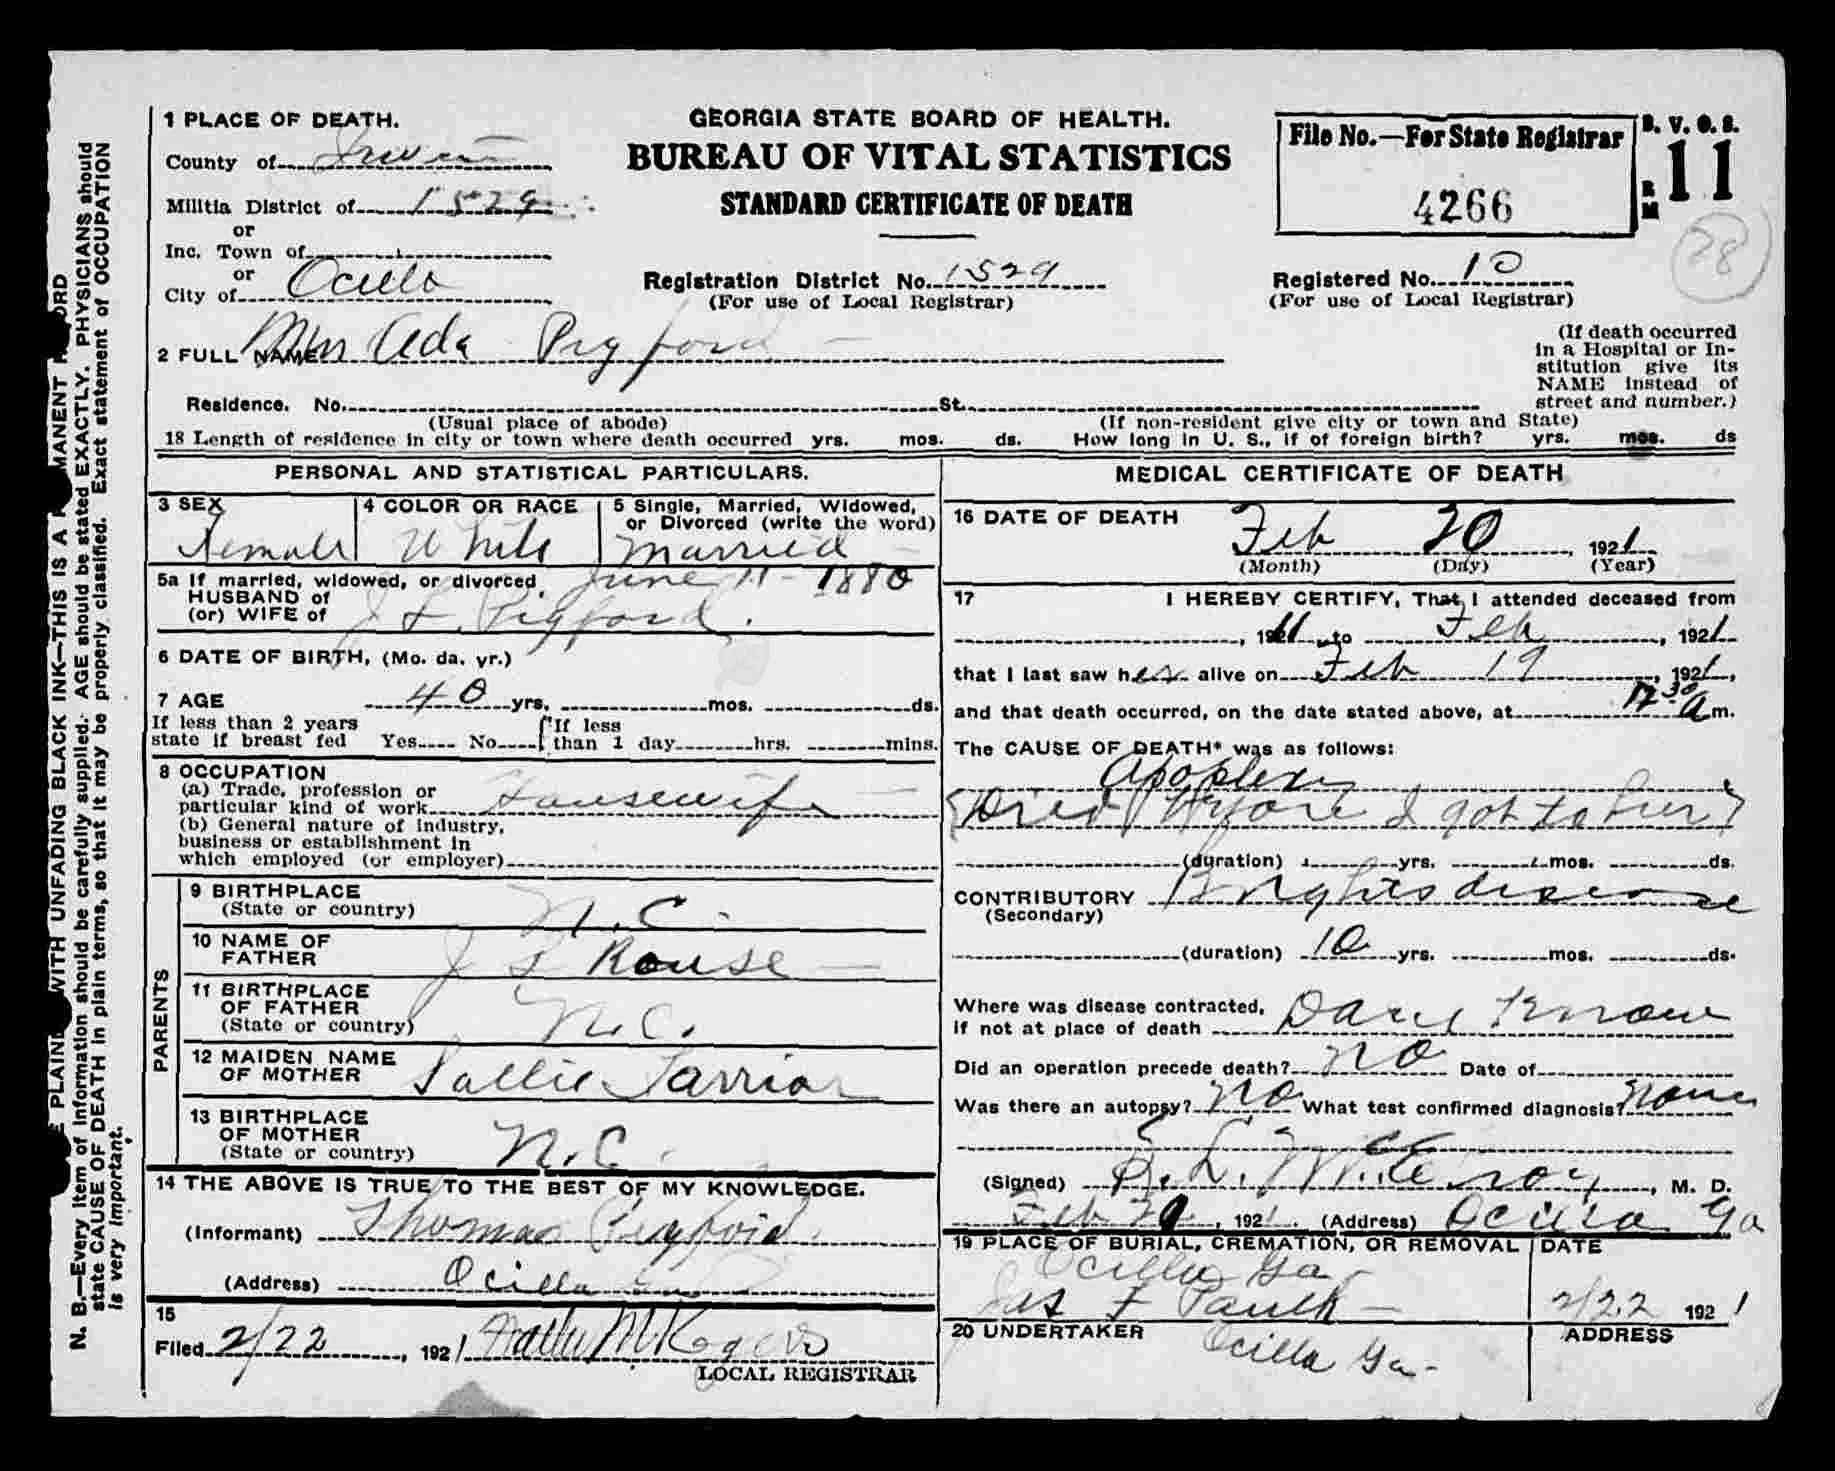 1 PLACE OF DEATH.
County of Irwin
Militia District of 1529
or
Inc. Town of
or
City of Ocilla
GEORGIA STATE BOARD OF HEALTH.
BUREAU OF VITAL STATISTICS
STANDARD CERTIFICATE OF DEATH
Registration District No. 1529
(For use of Local Registrar)
File No.—For State Registrar
4266
B. V. O. S.
RM 11
28
Registered No. 10
(For use of Local Registrar)
2 FULL NAME Mrs Ada Pigford
(If death occurred
in a Hospital or In-
stitution give its
NAME instead of
street and number.)
Residence. No. St.
(Usual place of abode) (If non-resident give city or town and State)
18 Length of residence in city or town where death occurred yrs. mos. ds. How long in U. S., if of foreign birth? yrs. mos. ds
PERSONAL AND STATISTICAL PARTICULARS.
3 SEX
Female
4 COLOR OR RACE
White
5 Single, Married, Widowed,
or Divorced (write the word)
Married
5a If married, widowed, or divorced June 11 - 1880
HUSBAND of
(or) WIFE of J L Pigford.
6 DATE OF BIRTH, (Mo. da. yr.)
7 AGE 40 yrs. mos. ds.
If less than 2 years
state if breast fed Yes No
If less
than 1 day hrs. mins.
8 OCCUPATION
(a) Trade, profession or
particular kind of work Housewife
(b) General nature of industry,
business or establishment in
which employed (or employer)
PARENTS
9 BIRTHPLACE
(State or country) N.C.
10 NAME OF
FATHER Rouse
11 BIRTHPLACE
OF FATHER
(State or country) N.C.
12 MAIDEN NAME
OF MOTHER Sallie
13 BIRTHPLACE
OF MOTHER
(State or country) N.C.
14 THE ABOVE IS TRUE TO THE BEST OF MY KNOWLEDGE.
(Informant) Thomas Pigford
(Address) Ocilla
15
Filed 2/22, 1921
LOCAL REGISTRAR
MEDICAL CERTIFICATE OF DEATH
16 DATE OF DEATH Feb 20, 1921
(Month) (Day) (Year)
17 I HEREBY CERTIFY, That I attended deceased from
, 1911 to Feb, 1921
that I last saw her alive on Feb 19, 1921,
and that death occurred, on the date stated above, at 12 30 a m.
The CAUSE OF DEATH* was as follows:
Apoplexy
(Died before I got to her)
(duration) yrs. mos. ds.
CONTRIBUTORY Brights disease
(Secondary)
(duration) 10 yrs. mos. ds.
Where was disease contracted,
if not at place of death Know
Did an operation precede death? no Date of
Was there an autopsy? No What test confirmed diagnosis? None
(Signed) L. McElroy, M. D.
Feb 20, 1921. (Address) Ocilla Ga
19 PLACE OF BURIAL, CREMATION, OR REMOVAL
Ocilla Ga
DATE
2/22 1921
Jas F Paulk
20 UNDERTAKER
ADDRESS
Ocilla Ga-
N. B.—Every item of information should be carefully supplied. AGE should be stated EXACTLY. PHYSICIANS should
state CAUSE OF DEATH in plain terms, so that it may be properly classified. Exact statement of OCCUPATION
is very important.
PLAIN WITH UNFADING BLACK INK—THIS IS A